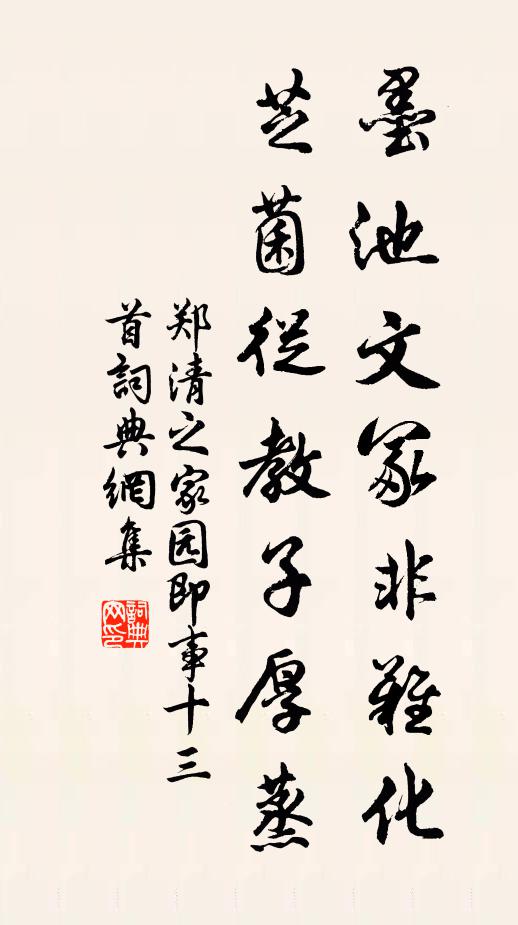 墨池文冢非難化
芝菌從教子厚蒸
郑清之家园即事十三
首詞典網集
詞典
网印